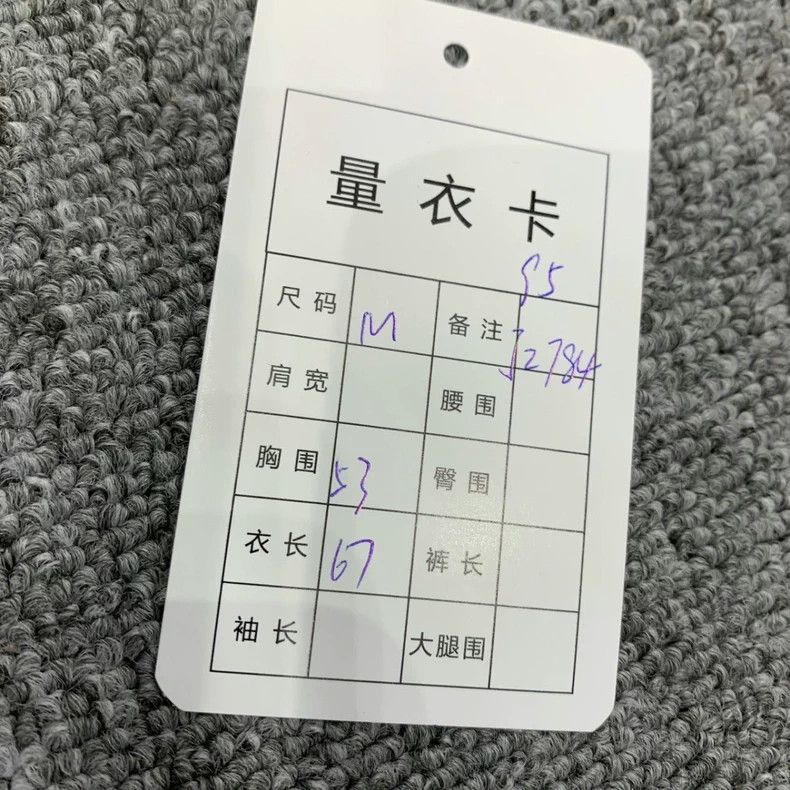 量衣卡
95
尺码 M 备注 J2784
肩宽 腰围
胸围 53 臀围
衣长 67 裤长
袖长 大腿围